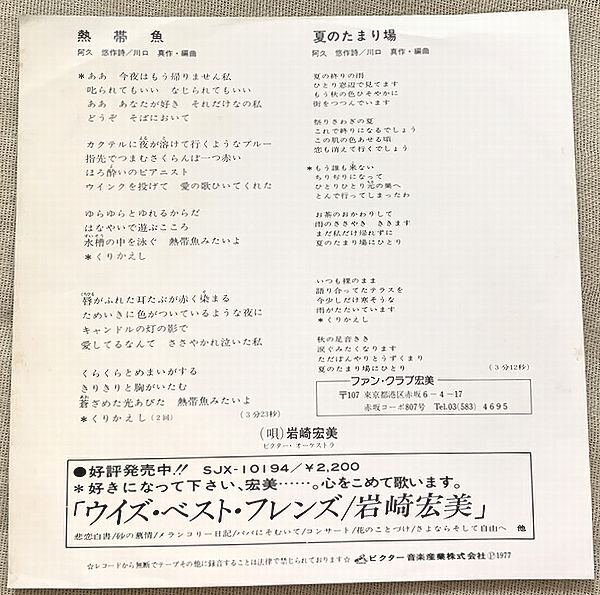 熱帯魚
阿久 悠作詩/川口 真作・編曲
*ああ 今夜はもう帰りません私
叱られてもいい なじられてもいい
ああ あなたが好き それだけなの私
どうぞ そばにおいて
カクテルに夜が溶けて行くようなブルー
指先でつまむさくらんぼ一つ赤い
ほろ酔いのピアニスト
ウインクを投げて 愛の歌ひいてくれた
ゆらゆらとゆれるからだ
はなやいで遊ぶこころ
水槽の中を泳ぐ 熱帯魚みたいよ
*くりかえし
唇がふれた耳たぶが赤く染まる
ためいきに色がついているような夜に
キャンドルの灯の影で
愛してるなんて ささやかれ泣いた私
くらくらとめまいがする
きりきりと胸がいたむ
蒼ざめた光あびた 熱帯魚みたいよ
*くりかえし(2回) (3分23秒)
夏のたまり場
阿久 悠作詩/川口 真作・編曲
夏の終りの雨
ひとり窓辺で見てます
もう秋の色ひそやかに
街をつつんでいます
祭りさわぎの夏
これで終りになるでしょう
この肌の色あせる頃
恋も消えて行くでしょう
*もう誰も来ない
ちりぢりになって
ひとりひとり元の巣へ
とんで行ってしまったわ
お茶のおかわりして
雨のささやき ききます
まだ私だけ帰れずに
夏のたまり場にひとり
いつも裸のまま
語り合ってたテラスを
今少しだけ寒そうな
雨がたたいています
*くりかえし
秋の足音きき
涙ぐみたくなります
ただぼんやりとうずくまり
夏のたまり場にひとり (3分12秒)
ファン・クラブ宏美
〒107 東京都港区赤坂6-4-17
赤坂コーポ807号 Tel.03(583)4695
(唄)岩崎宏美
ビクター・オーケストラ
●好評発売中!! SJX-10194/¥2,200
*好きになって下さい、宏美……。心をこめて歌います。
「ウイズ・ベスト・フレンズ/岩崎宏美」
悲恋白書/砂の慕情/メランコリー日記/パパにそむいて/コンサート/花のことづけ/さよならそして自由へ 他
☆レコードから無断でテープその他に録音することは法律で禁じられております☆ ビクター音楽産業株式会社 Ⓟ1977